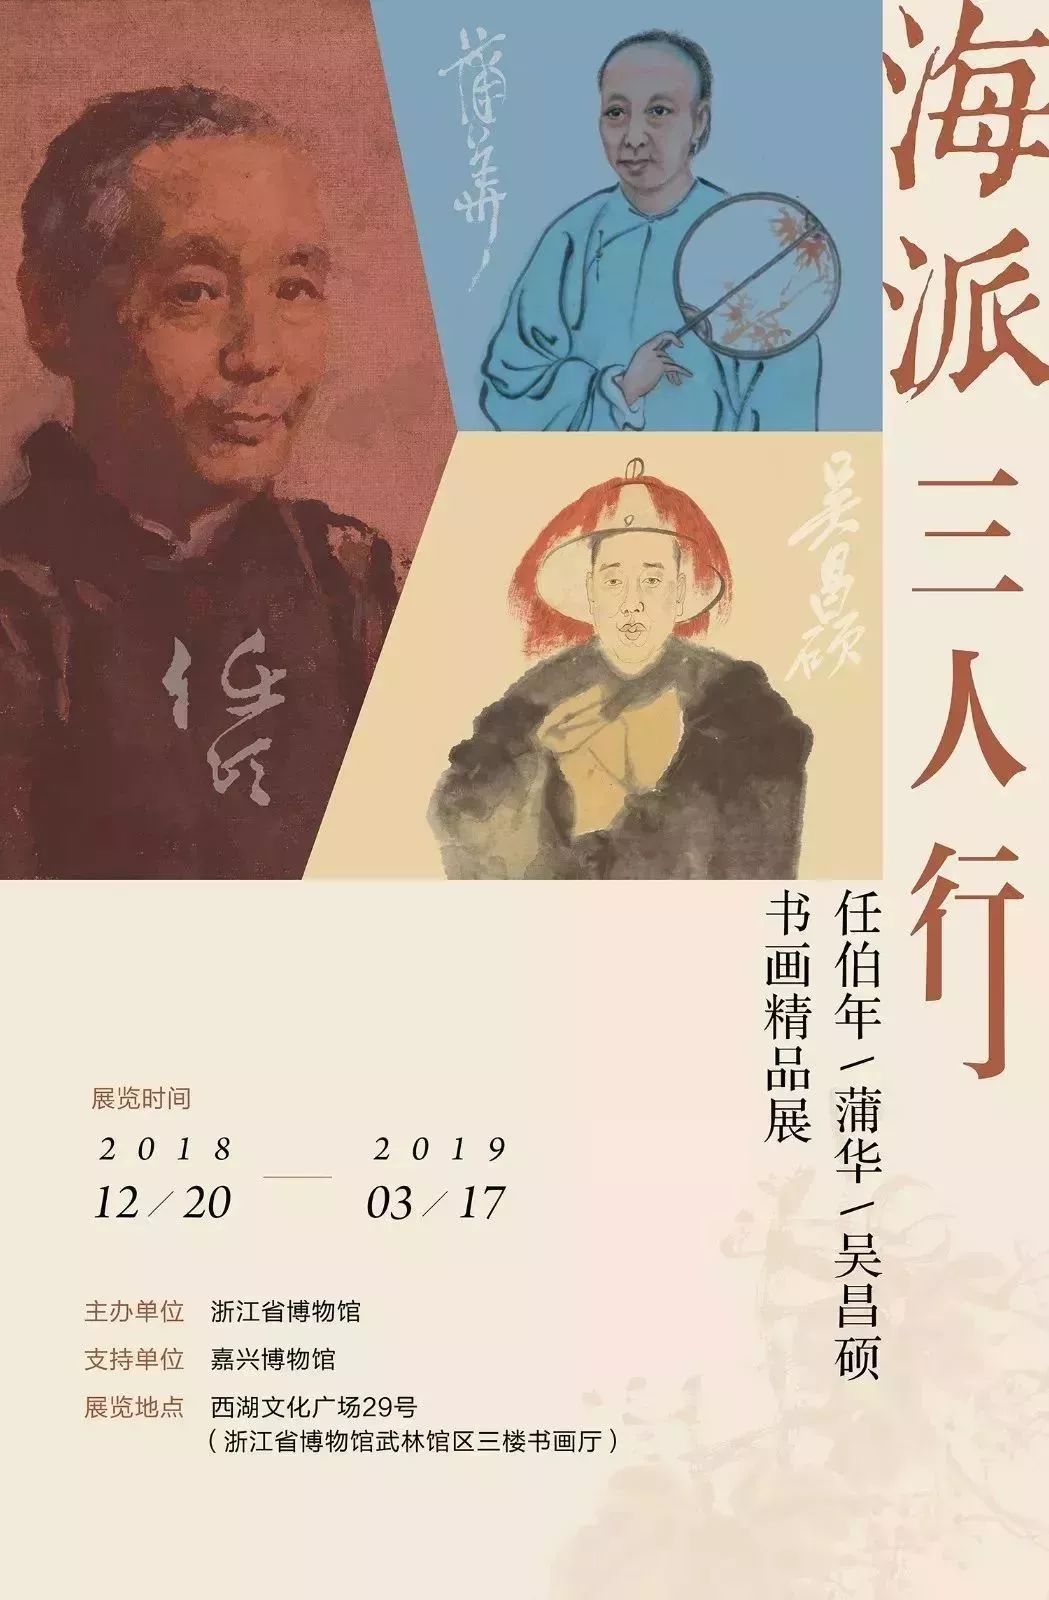 海派三人行
任伯年/蒲华/吴昌硕
书画精品展
蒲华
吴昌硕
任颐
展览时间
2018 2019
12/20 — 03/17
主办单位 浙江省博物馆
支持单位 嘉兴博物馆
展览地点 西湖文化广场29号
（浙江省博物馆武林馆区三楼书画厅）